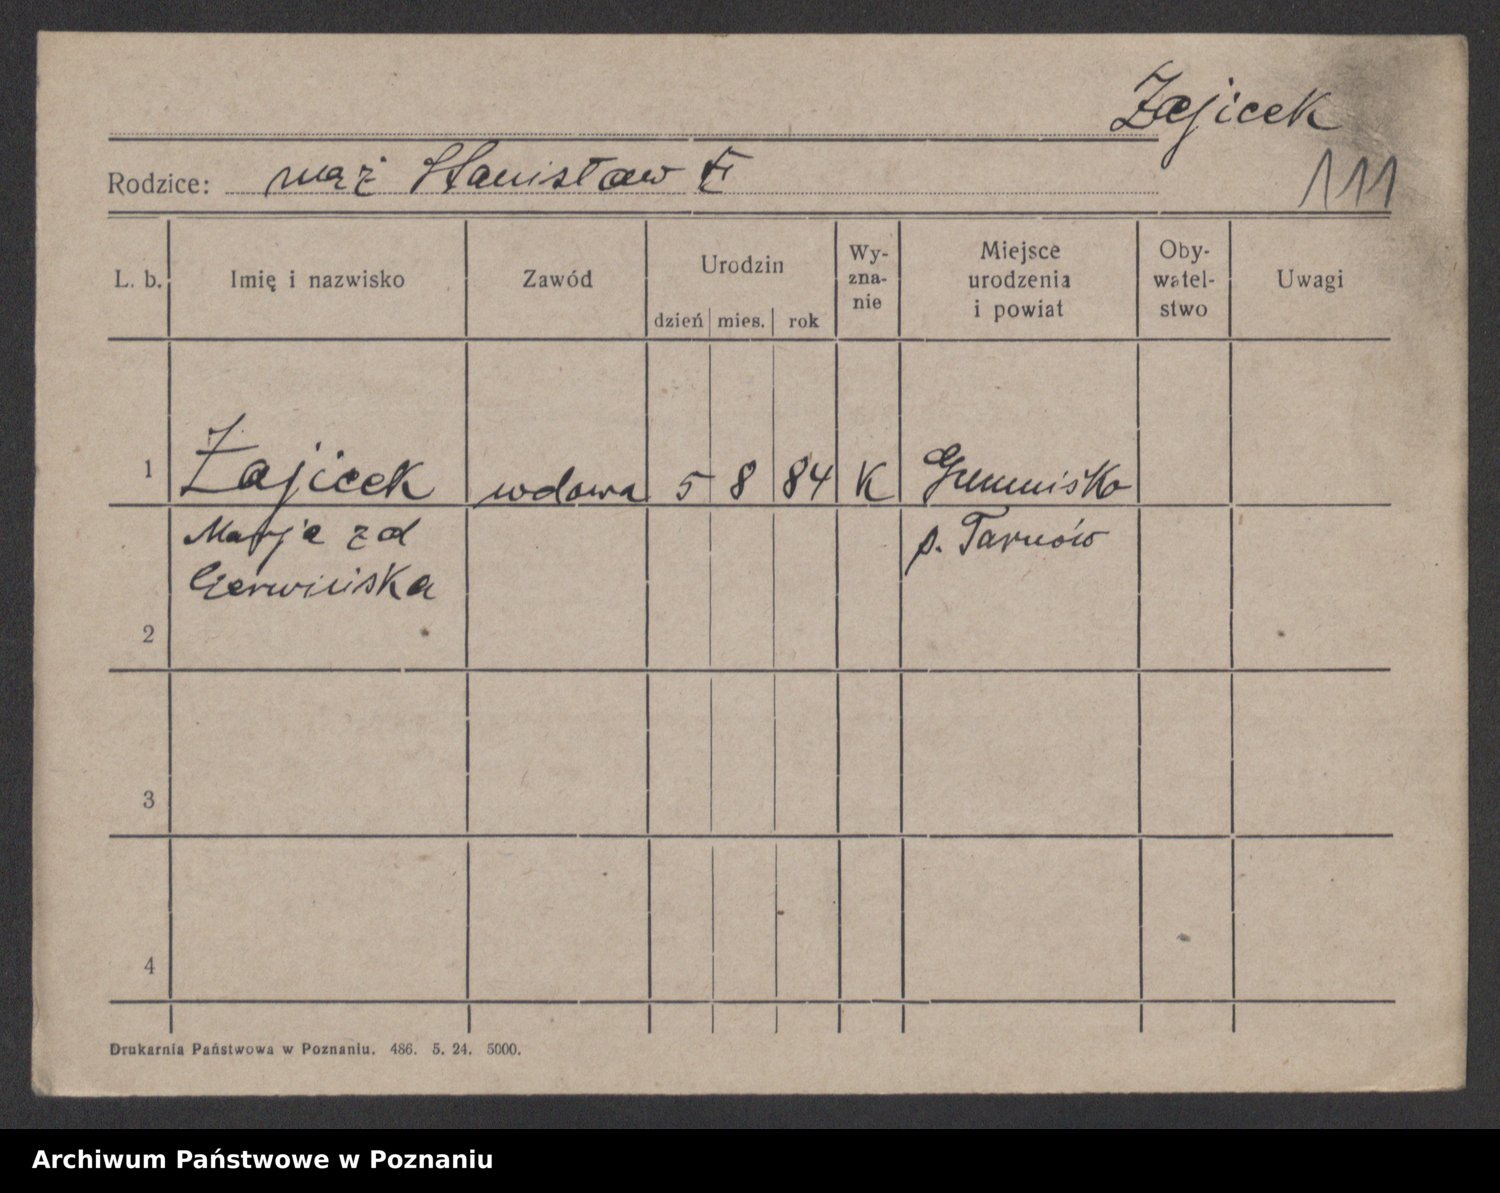 Zajicek
Rodzice: mąż Stanisław
111
L. b. Imię i nazwisko Zawód Urodzin dzień mies. rok Wy-zna-nie Miejsce urodzenia i powiat Oby-watel-stwo Uwagi
1 Zajicek wdowa 5 8 84 K
Marja zd p. Tarnów
Czerwińska
2
3
4
Drukarnia Państwowa w Poznaniu. 486. 5. 24. 5000.
Archiwum Państwowe w Poznaniu